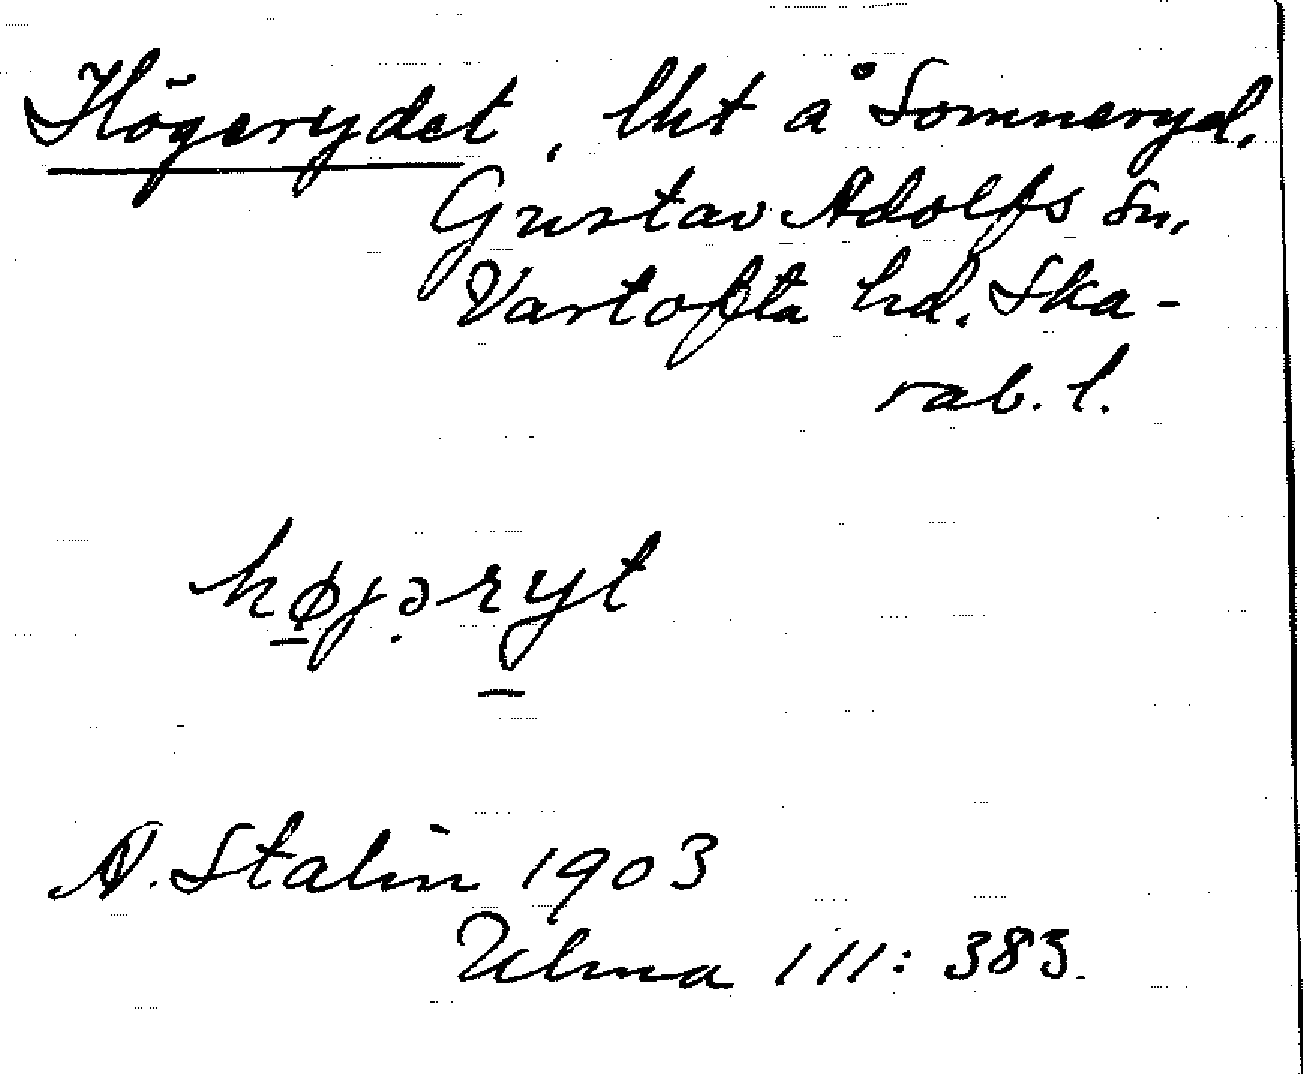 Högerydet, lht å Somneryd.
Gustav Adolfs sn,
Vartofta hd. Ska-
rab. l.
højəryt
A. Stalin 1903
Ulma 111: 383.